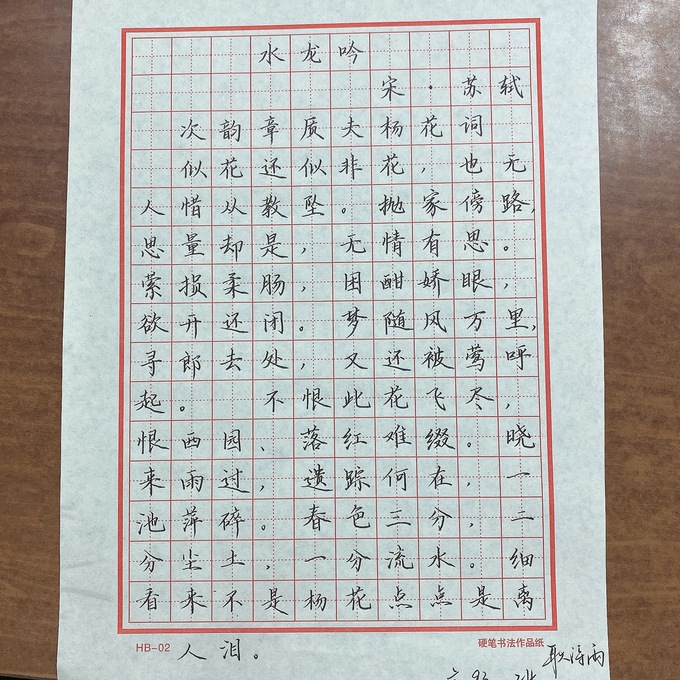 水龙吟
宋·苏轼
次韵章质夫杨花词
似花还似非花，也无
人惜从教坠。抛家傍路，
思量却是，无情有思。
萦损柔肠，困酣娇眼，
欲开还闭。梦随风万里，
寻郎去处，又还被莺呼
起。 不恨此花飞尽，
恨西园、落红难缀。晓
来雨过，遗踪何在，一
池萍碎。春色三分，二
分尘土，一分流水。细
看来不是杨花点点是离
HB-02 硬笔书法作品纸
人泪。